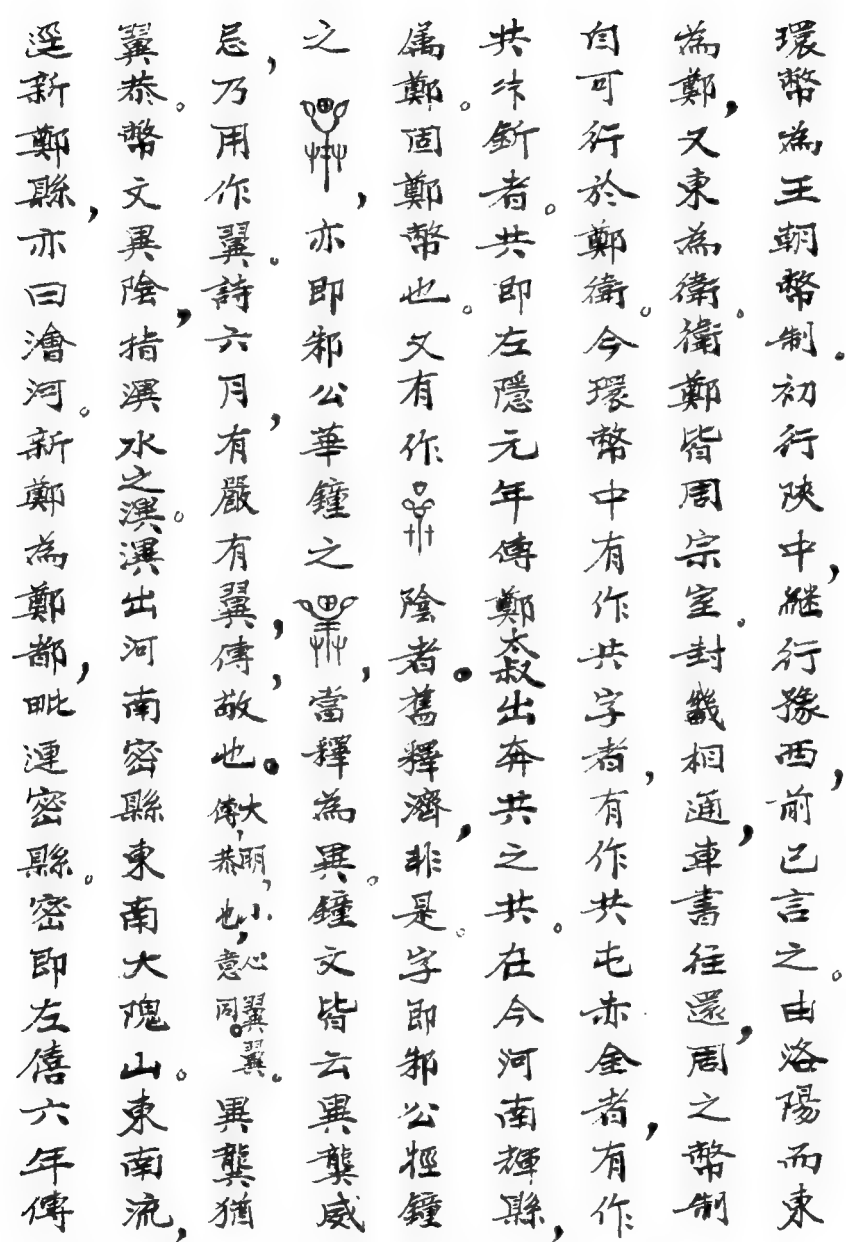 環幣為王朝幣制。初行陝中，繼行豫西，前已言之。由洛陽而東
為鄭，又東為衛。衛鄭皆周宗室。封畿相通，車書往還，周之幣制
自可行於鄭衛。今環幣中有作共字者，有作共屯赤金者，有作
共汴釿者。共即左隱元年傳鄭太叔出奔共之共。在今河南輝縣，
屬鄭。固鄭幣也。又有作陰者。舊釋濟，非是。字即邾公牼鐘
之，亦即邾公華鐘之，當釋為異。鐘文皆云異龔威
忌，乃用作翼。詩六月，有嚴有翼，傳，敬也。大明，小心翼翼。傳，恭也，意同。異龔猶
翼恭。幣文異陰，指潩水之潩。潩出河南密縣東南大隗山。東南流，
逕新鄭縣，亦曰澮河。新鄭為鄭都，毗連密縣。密即左僖六年傳